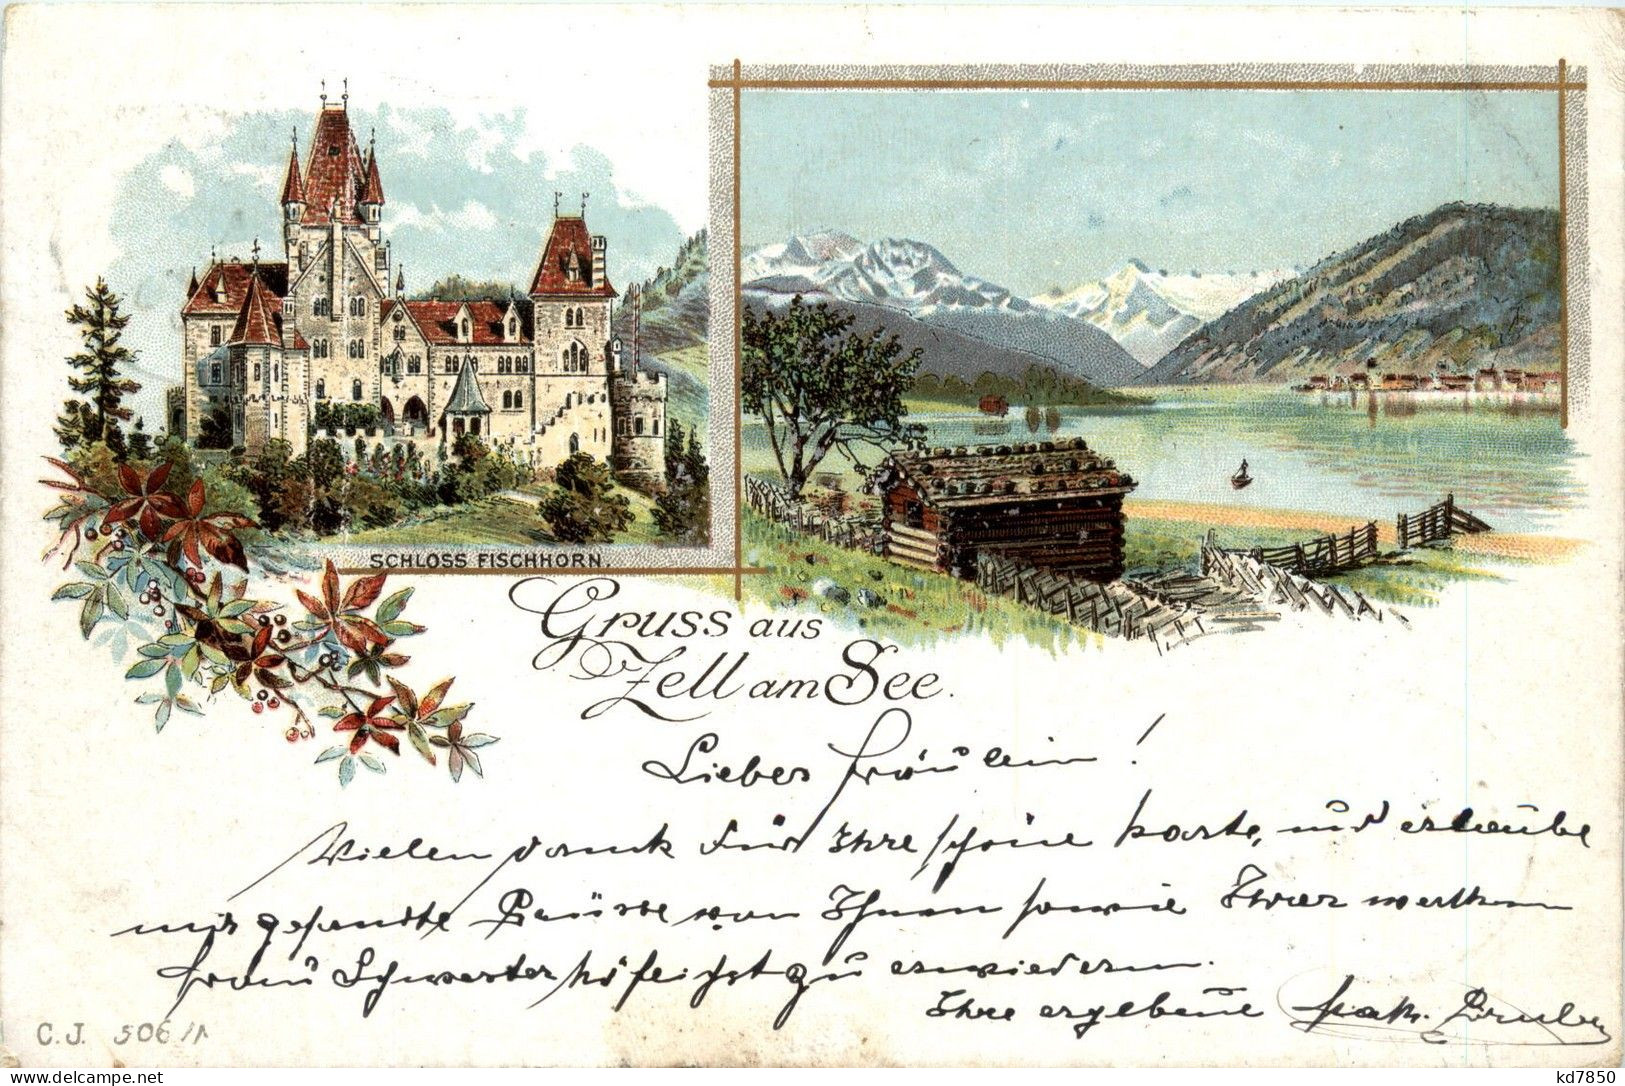 SCHLOSS FISCHHORN.
Gruss aus
Zell am See.
Liebes Fräulein!
Vielen Dank für Ihre schöne Karte, und erlaube
mir gesandte Grüsse von Ihnen sowie Ihrer werthen
Frau Schwester höfeichst zu erwiedern.
Ihre ergebene
C.J. 506/1
kd7850